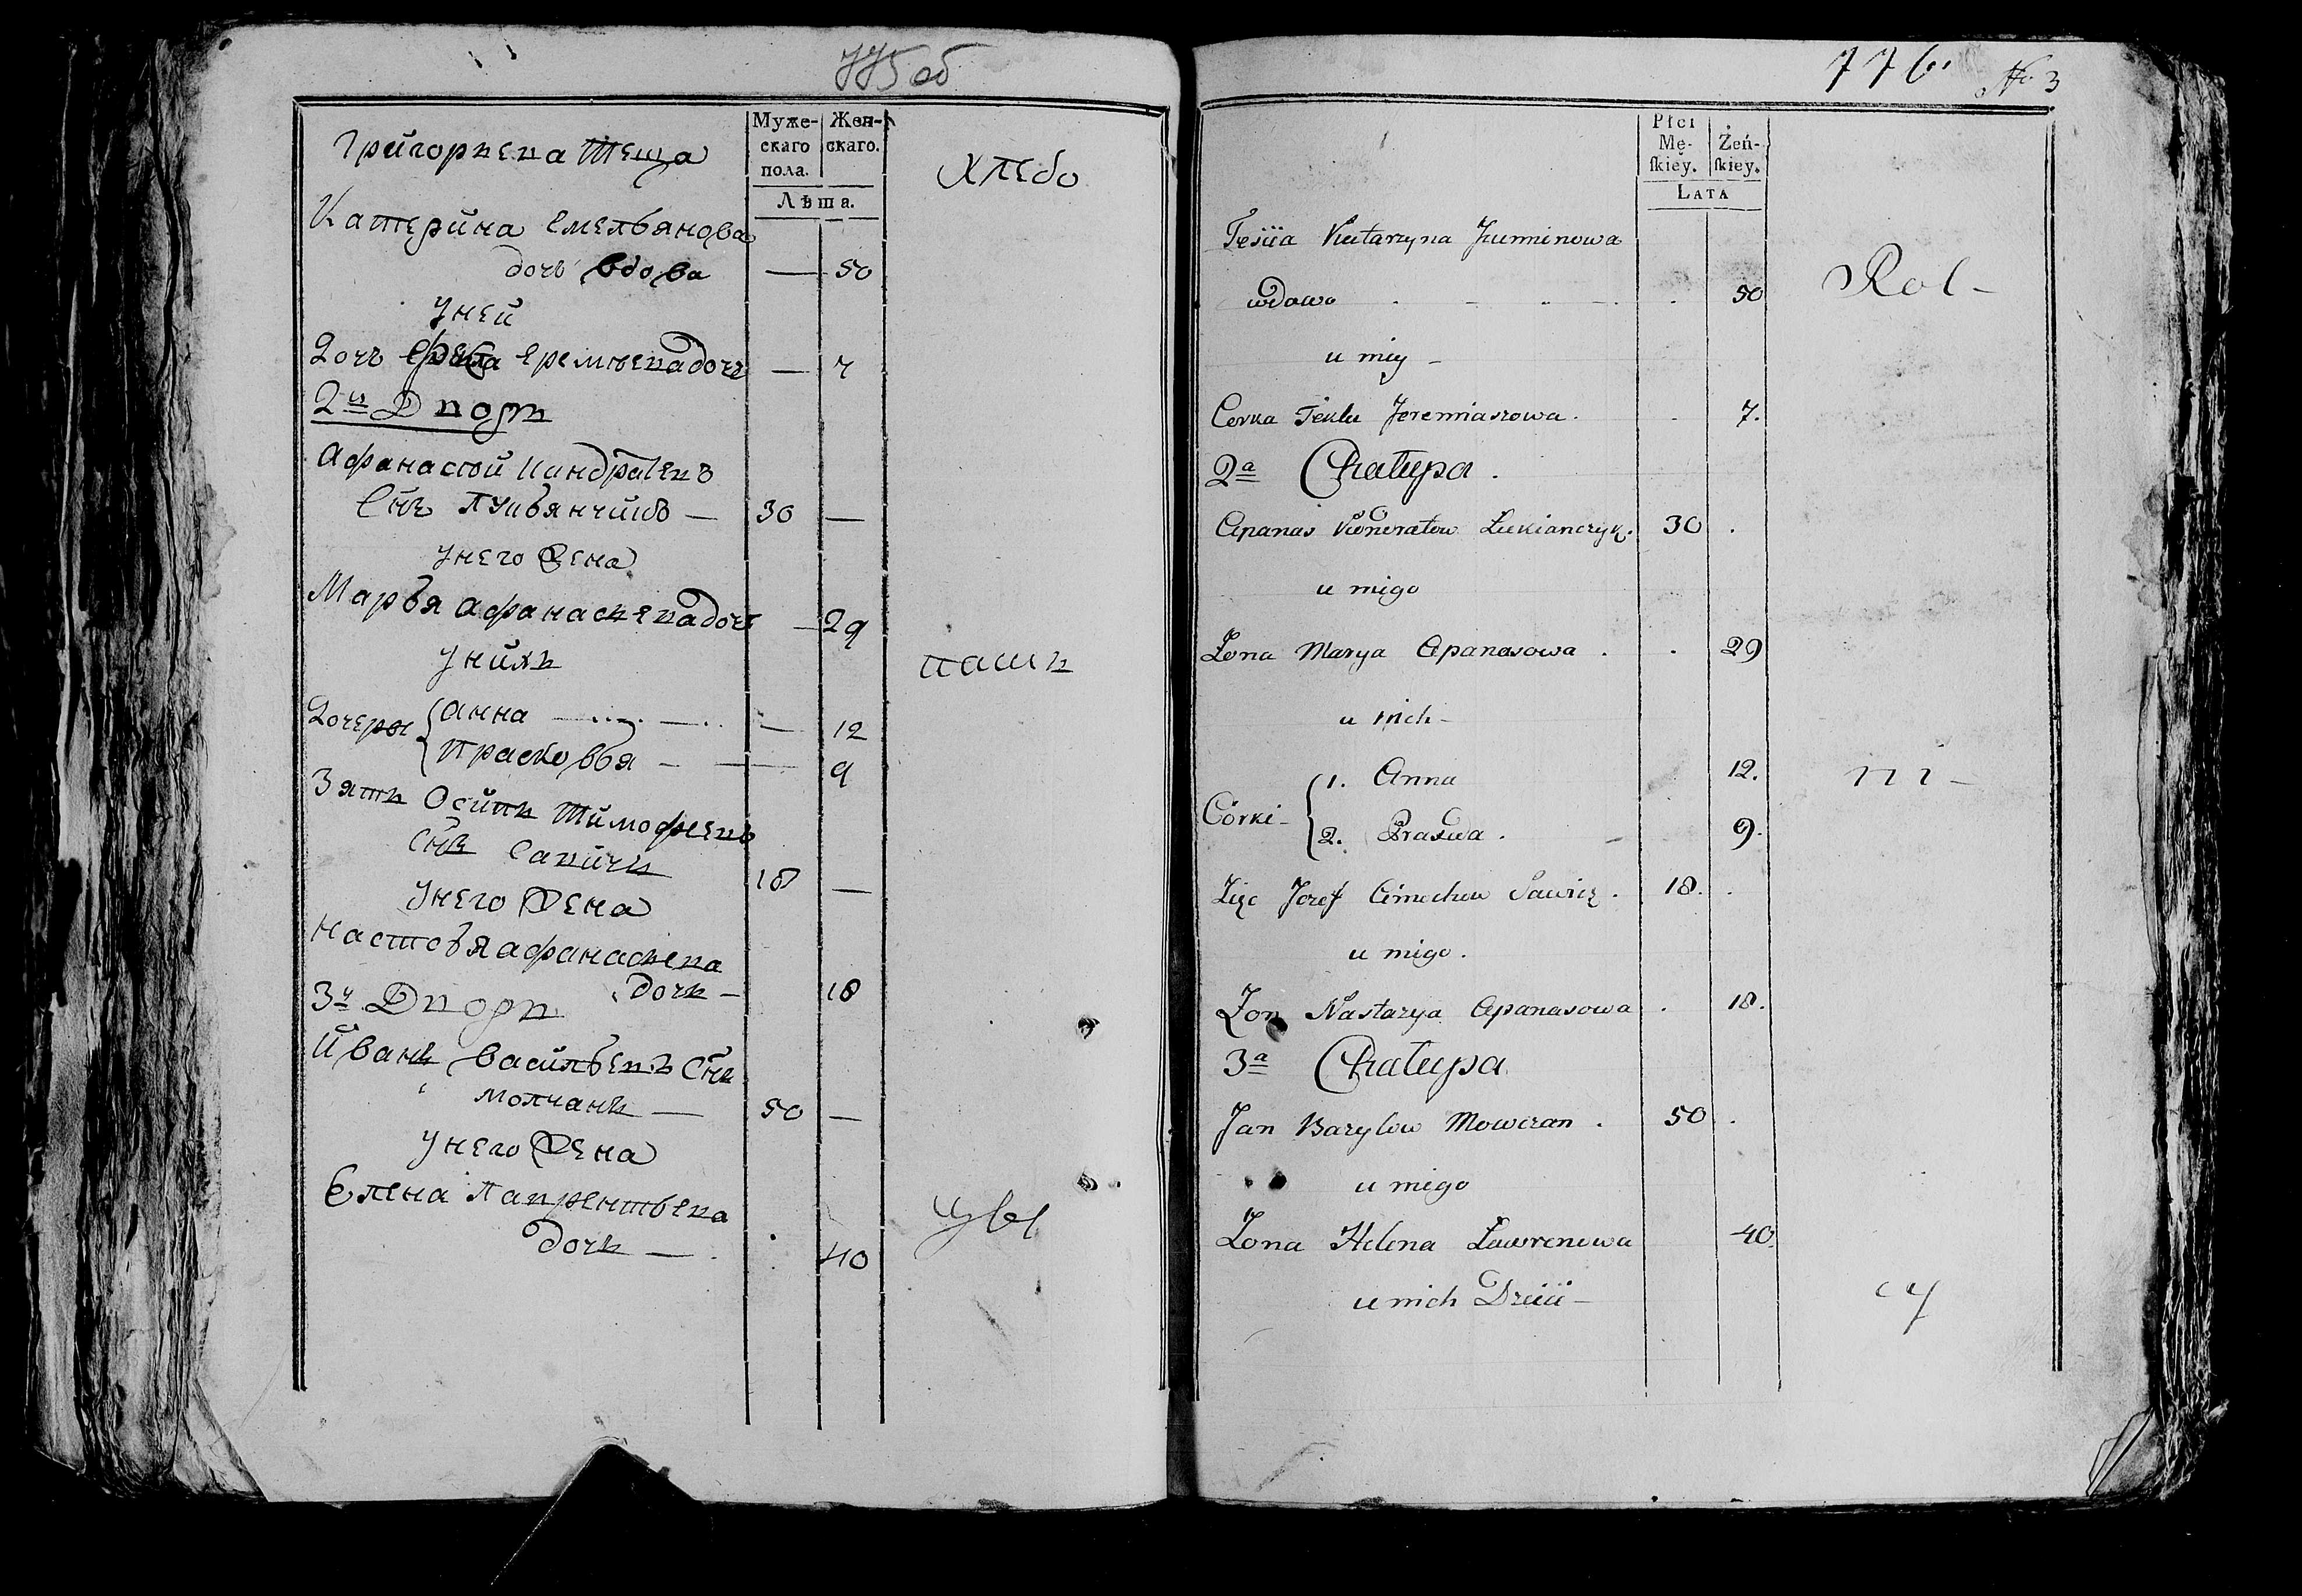 775 об
Муже-
скаго
пола.
Жен-
скаго.
Лѣта.
Григорьева Теща
хлебо
Катерина Емельянова
дочь вдова — 50
У ней
Дочь Еремѣева дочь — 7
2й Дворъ
Афанасий Киндратевъ
Снъ Лукьянчикъ — 30 —
У него Жена
Марья Афанасьева дочь — 29
У нихъ
паш
Дочери { Анна — 12
Прасковья — 9
Зять Осипъ Тимофеевъ
Снъ Савичъ 18 —
У него Жена
Настовья Афанасьева
дочь — 18
3й Дворъ
Иванъ Васильевъ Снъ
Молчанъ — 50 —
У него Жена
Елена Лаврентьева
дочь — 40
цы
776. No 3
Płci
Mę-
ſkiey.
Żeń-
ſkiey.
LATA
Teścia Katarzyna Jurminowa
wdowa 50
Rol-
u niey -
Corka Tekla Jeremiaszowa. 7.
2a Chałupa.
Apanas Kondratow Łukianczyk. 30 .
u niego
Zona Marya Apanasowa . . 29
u nich -
Córki - { 1. Anna 12.
2. Praswa. 9.
ni -
Zięc Jozef Cimochow Sawicz. 18. .
u niego.
Zona Nastazya Apanasowa . 18.
3a Chałupa
Jan Bazylow Mowczan . 50 .
u niego
Zona Helena Ławrenowa 40.
u nich Dzieci -
cy